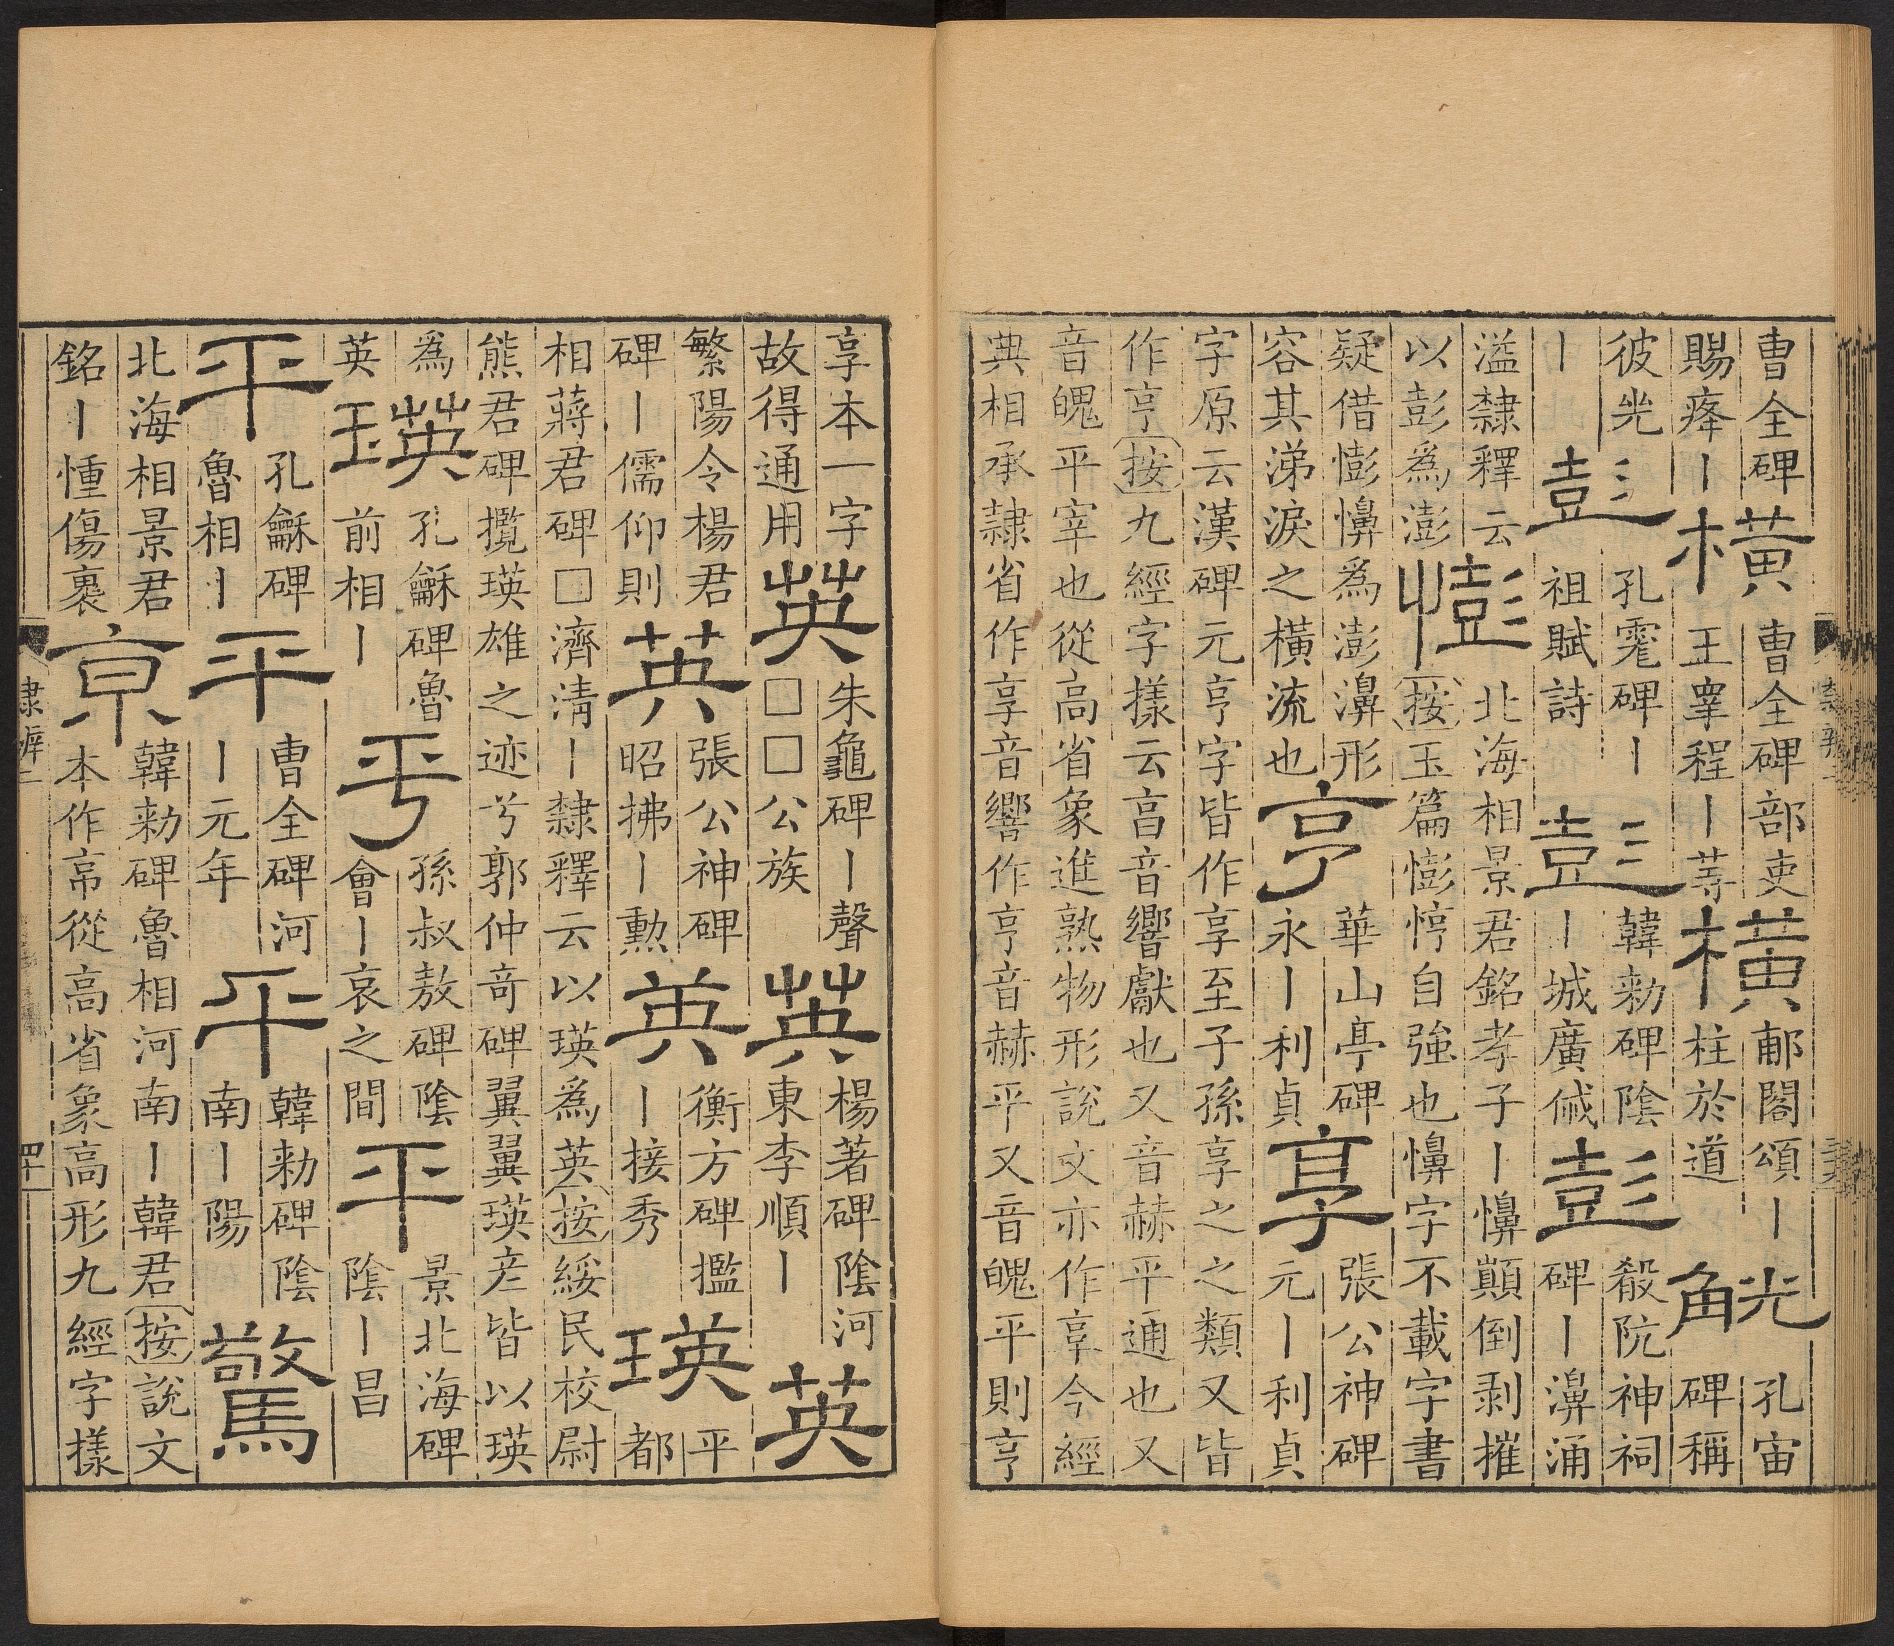 曹全碑
賜瘽丨
橫
曹全碑部吏
王宰程丨等
橫
郙閣頌丨
柱於道
觥
孔宙
碑稱
彼光
丨
彭
孔碑丨
祖賦詩
彭
韓勑碑陰
丨城廣
彭
殽阬神祠
碑丨濞涌
溢隸釋云
以彭為澎
憉
北海相景君銘孝子丨顛倒剥摧
按玉篇憉悙自強也字不載字書
疑借憉為澎濞形
容其涕淚之橫流也
亨
華山亭碑
永丨利貞
享
張公神碑
元丨利貞
字原云漢碑元亨字皆作享至子孫享之之類又皆
作亨按九經字樣云亯音響獻也又音赫平通也又
音魄平宰也從高省象進熟物形說文亦作享今經
典相承隸省作享音響作亨音赫平又音魄平則亨
享本一字
故得通用
英
朱龜碑丨聲
□□公族
英
楊著碑陰河
東李順丨
英
繁陽令楊君
碑丨儒仰則
英
張公神碑
昭拂丨勲
英
衡方碑㩜
丨接秀
瑛
平
都
相蔣君碑□濟清丨隸釋云以瑛為英按綏民校尉
熊君碑攬瑛雄之迹兮郭仲奇碑翼翼瑛彥皆以瑛
為
英
瑛
孔龢碑魯
前相丨
平
孫叔敖碑陰
會丨哀之間
平
景北海碑
陰丨昌
平
孔龢碑
魯相丨
平
曹全碑河
丨元年
平
韓勑碑陰
南丨陽
驚
北海相景君
銘丨慟傷裹
京
韓勑碑魯相河南丨韓君按說文
本作㐭從高省象高形九經字樣
隸辨二
四十